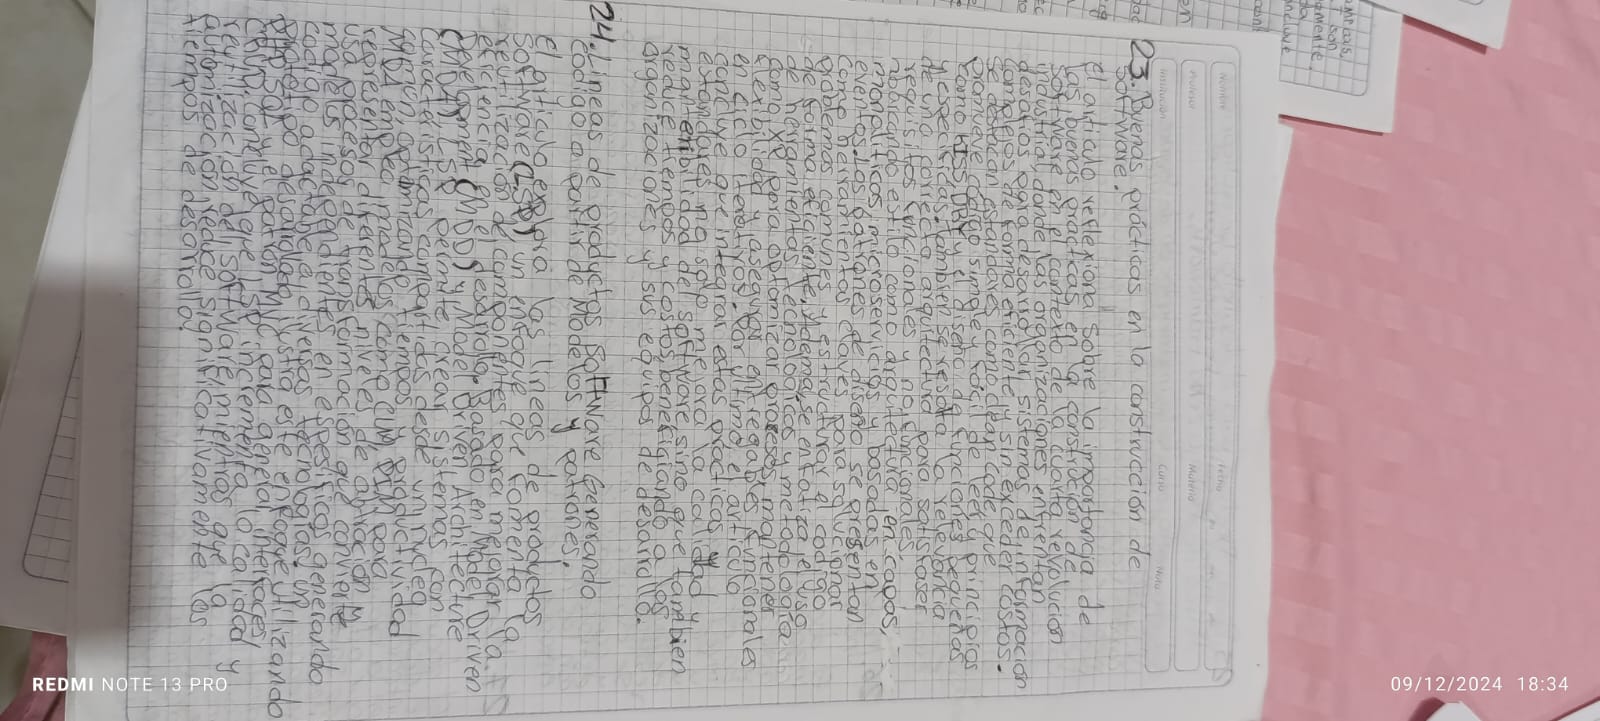 Nombre
Fecha
Profesor
Materia
Institución
Curso
Nota
23. Buenas prácticas en la construcción de
Software.
El artículo reflexiona sobre la importancia de
las buenas prácticas en la construcción de
software en el contexto de la cuarta revolución
industrial donde las organizaciones enfrentan
desafíos para desarrollar sistemas de información
complejos de forma eficiente y sin exceder costos.
Se destacan estándares como clean code que
promueve código simple y fácil de leer y principios
como KISS, DRY y el uso de funciones pequeñas
y específicas. También se resalta la relevancia
de una correcta arquitectura para satisfacer
requisitos funcionales y no funcionales,
incluyendo estilos como arquitectura en capas,
monolíticos, microservicios y basadas en
eventos. Los patrones de diseño se presentan
como herramientas claves para solucionar
problemas comunes y estructurar el código
de forma eficiente. Además, se enfatiza el uso
de herramientas tecnológicas y metodologías
como XP para optimizar procesos, mantener
flexibilidad y asegurar entregables funcionales
en ciclos cortos. Por último el artículo
concluye que integrar estas prácticas y
estándares no solo mejora la calidad y
mantenibilidad de software sino que también
reduce tiempos y costos beneficiando a las
organizaciones y sus equipos de desarrollo.
24. Líneas de productos Software Generando
código a partir de Modelos y patrones.
El artículo explora las líneas de productos
Software (LSP) un enfoque que fomenta la
reutilización de componentes para mejorar la
eficiencia en el desarrollo. Basado en Model Driven
Development (MDD) y Model Driven Architecture
(MDA) LSP permite crear sistemas con
características comunes desde una idea
común, optimizando tiempos y productividad
MDA emplea modelos como CIM, PIM para
representar diferentes niveles de abstracción y
usa procesos de transformación que convierten
modelos independientes en específicos generando
código adaptable a diversas tecnologías. Un
prototipo desarrollado ilustra este enfoque utilizando
PHP, SQL y el patrón MVC para generar interfaces y
CRUD. Concluye que LSP incrementa la calidad y
reutilización del software, mientras que la
automatización reduce significativamente los
tiempos de desarrollo.
REDMI NOTE 13 PRO
09/12/2024 18:34